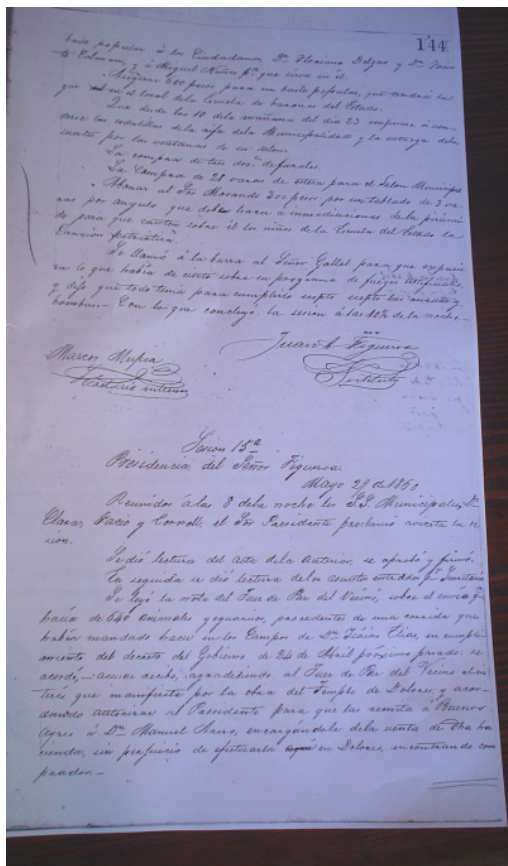 144
baile popular á los Ciudadanos Dn. Feliciano Dolgas y Dn. Jacin
to Colman, y á Miguel Nuñes pa. que sirva en él.
Asignar 600 pesos para un baile popular, que tendrá lu
gar en el local dela Escuela de barones del Estado.
Que desde las 10 dela mañana del dia 23 empiese á ven
derse las cedulillas de la rifa dela Municipalidad y la entrega delas
suertes por las ventanas de su Salon.
La compra de tres doc.s de fanales.
La Compra de 28 varas de estera para el Salon Municipal
Abonar al Sor Morando 300 pesos por un tablado de 3 va
ras por angulo que deberá hacer á inmediaciones de la pirámi
de para que canten sobre él los niños de la Escuela del Estado la
Cancion patriótica.
Se llamó á la barra al Señor Gallol para que expusie
ra lo que había de cierto sobre su programa de fuegos artificiales
y dijo que todo tenia para cumplirlo
bombas. Con lo que concluyó la sesion á las 10½ de la noche.
Juan A. Figueroa
Marcos Mupia
interino
Sesion 15a
Presidencia del Señor Figueroa.
Mayo 28 de 1860
Reunidos á las 8 dela noche los S.S. Municipales, Dn.
Llanos, Facio y Cornell, el Sor Presidente proclamó avierta la se
sion.
Se dió lectura del acta dela Anterior, se aprobó y firmó.
En seguida se dió lectura delos asuntos entrados pr Secretaria
Se leyó la nota del Jues de Paz del Vecino, sobre el envio q.
hacía de 640 animales yeguarisos, procedentes de una corrida que
había mandado hacer en los Campos de Dn. Isaias Elias, en cumpli
miento del decreto del Gobierno de 24 de Abril próximo pasado: se
acordó, acusar recibo, agradeciendo al Jues de Paz del Vecino el in
terés que manifiesta por la obra del Templo de Dolores, y acor
dandose autorisar al Presidente para que las remita á Buenos
Ayres á Dn. Manuel Saens, encargándole dela venta de dha ha
cienda, sin perjuicio de efectuarla en Dolores, encontrando com
prador.